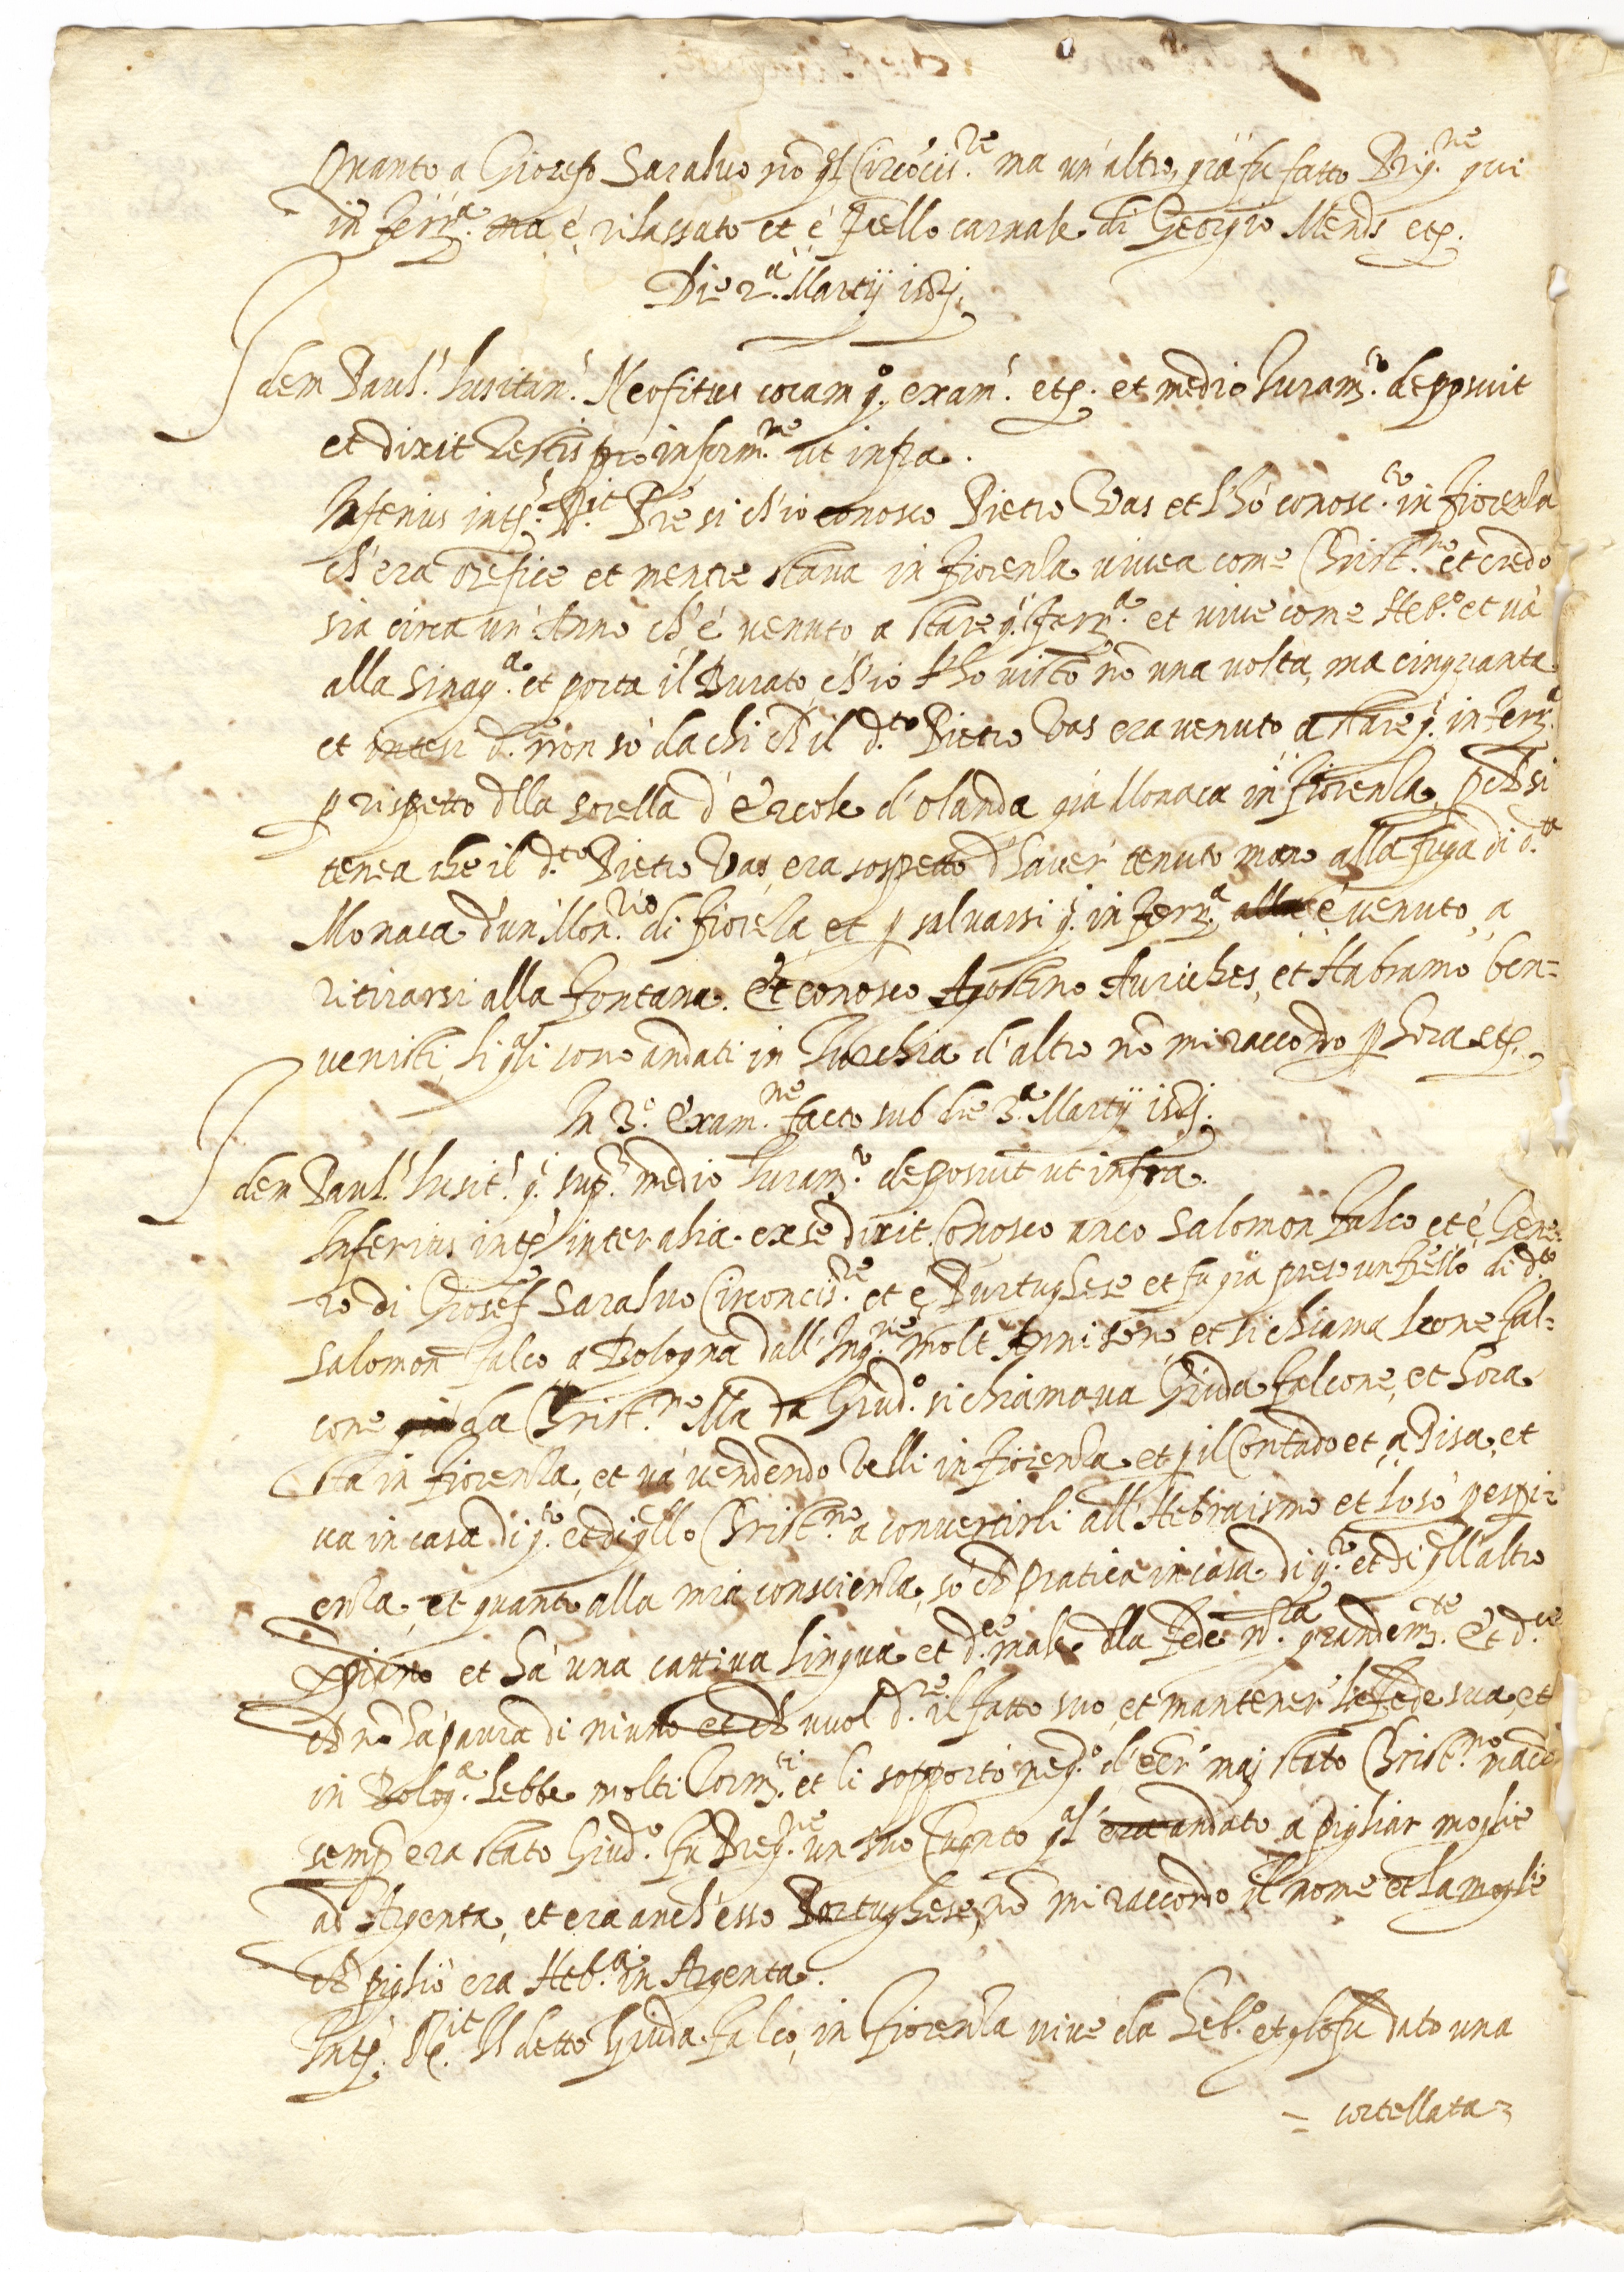 Quanto a Gioseffo Saralvo nō q̄l Circōcis.re ma un'altro, già fu fatto Prig.ne qui
in Ferr.a ma è rilassato et è frēllo carnale di Georgio Mends etc.
Die 2.a Martij 1581.
Idem Paul.s Lusitan.s Neofitus coram q.o exam.s etc. et medio Juram.to deposuit
et dixit testis pro inform.ne ut infra.
Inferius int.s R.it Prē si ch'io conosco Pietro Vas et l'hò conosc.to in Fiorenza
ch'era orefice et mentre stava in Fiorenza vivea come Christ.no et credo
sia circa un'Anno ch'è venuto a stare q.i Ferr.a et vive come Heb.o et và
alla Sinag.a et porta il Burato, ch'io l'ho visto nō una volta, ma cinquanta
et intesi d. non sò da chi ch̄ il d.to Pietro Vas era venuto a stare q.i in Ferr.a
p rispetto dlla sorella d'Ercole d'Olanda già Monaca in Fiorenza, pch̄ si
tenea che il d.to Pietro Vas era sospetto d'haver tenuto mano alla fuga di d.ta
Monaca d'un Mon.rio di Fiorēza, et p salvarsi q.i in Ferr.a è venuto a
ritirarsi alla Fontana. Et conosco Agostino Auriches, et Habramo ben=
venisti, li q̄li sono andati in Turchia d'altro nō mi raccordo p hora etc.
In 3.o Exam.ne facto sub die 3.a Martij 1581.
Idem Paul.s Lusit.s q.s sup.s medio Juram.to deposuit ut infra.
Inferius int.s inter alia ex se dixit. Conosco anco Salomon Falco et è Gene=
ro di Giosef Saralvo Circoncis.re et è Purtughese et fu già preso un frēllo di d.to
Salomon Falco a Bologna dall'Inq.ne molt'Anni sono, et si chiama Leone Fal=
cone da Christ.no Ma da Giud.o si chiamava Giuda Falcone, et hora
sta in Fiorenza, et và vendendo Velli in Fiorenza et p il Contado et a Pisa, et
va in casa di q.to et di q̄llo Christ.no a convertirli all'Hebraismo et lo sò p espi=
enza, et quanto alla mia conscienza, sò ch̄ pratica in casa di q.to et di q̄ll'altro
et hà una cattiva lingua et d.ce male dlla Fede n.ra grandem.te Et d.ce
ch̄ nō hà paura di niuno et ch̄ vuol d.re il fatto suo, et mantener la Fede sua, et
in Bolog.a hebbe molti Torm.ti et li sopportò neg.o d'eēr mai stato Christ.no ma ch̄
semp̄ era stato Giud.o Fu Preg.ne un suo Cugnto q̄l era andato a pigliar moglie
ad Argenta, et era anch'esso Portughese, nō mi raccordo il nome et la moglie
ch̄ pigliò era Heb.a in Argenta.
Int.s R.it Il detto Giuda Falco, in Fiorenza vive da Heb.o et gli fu dato una
= cortellata =